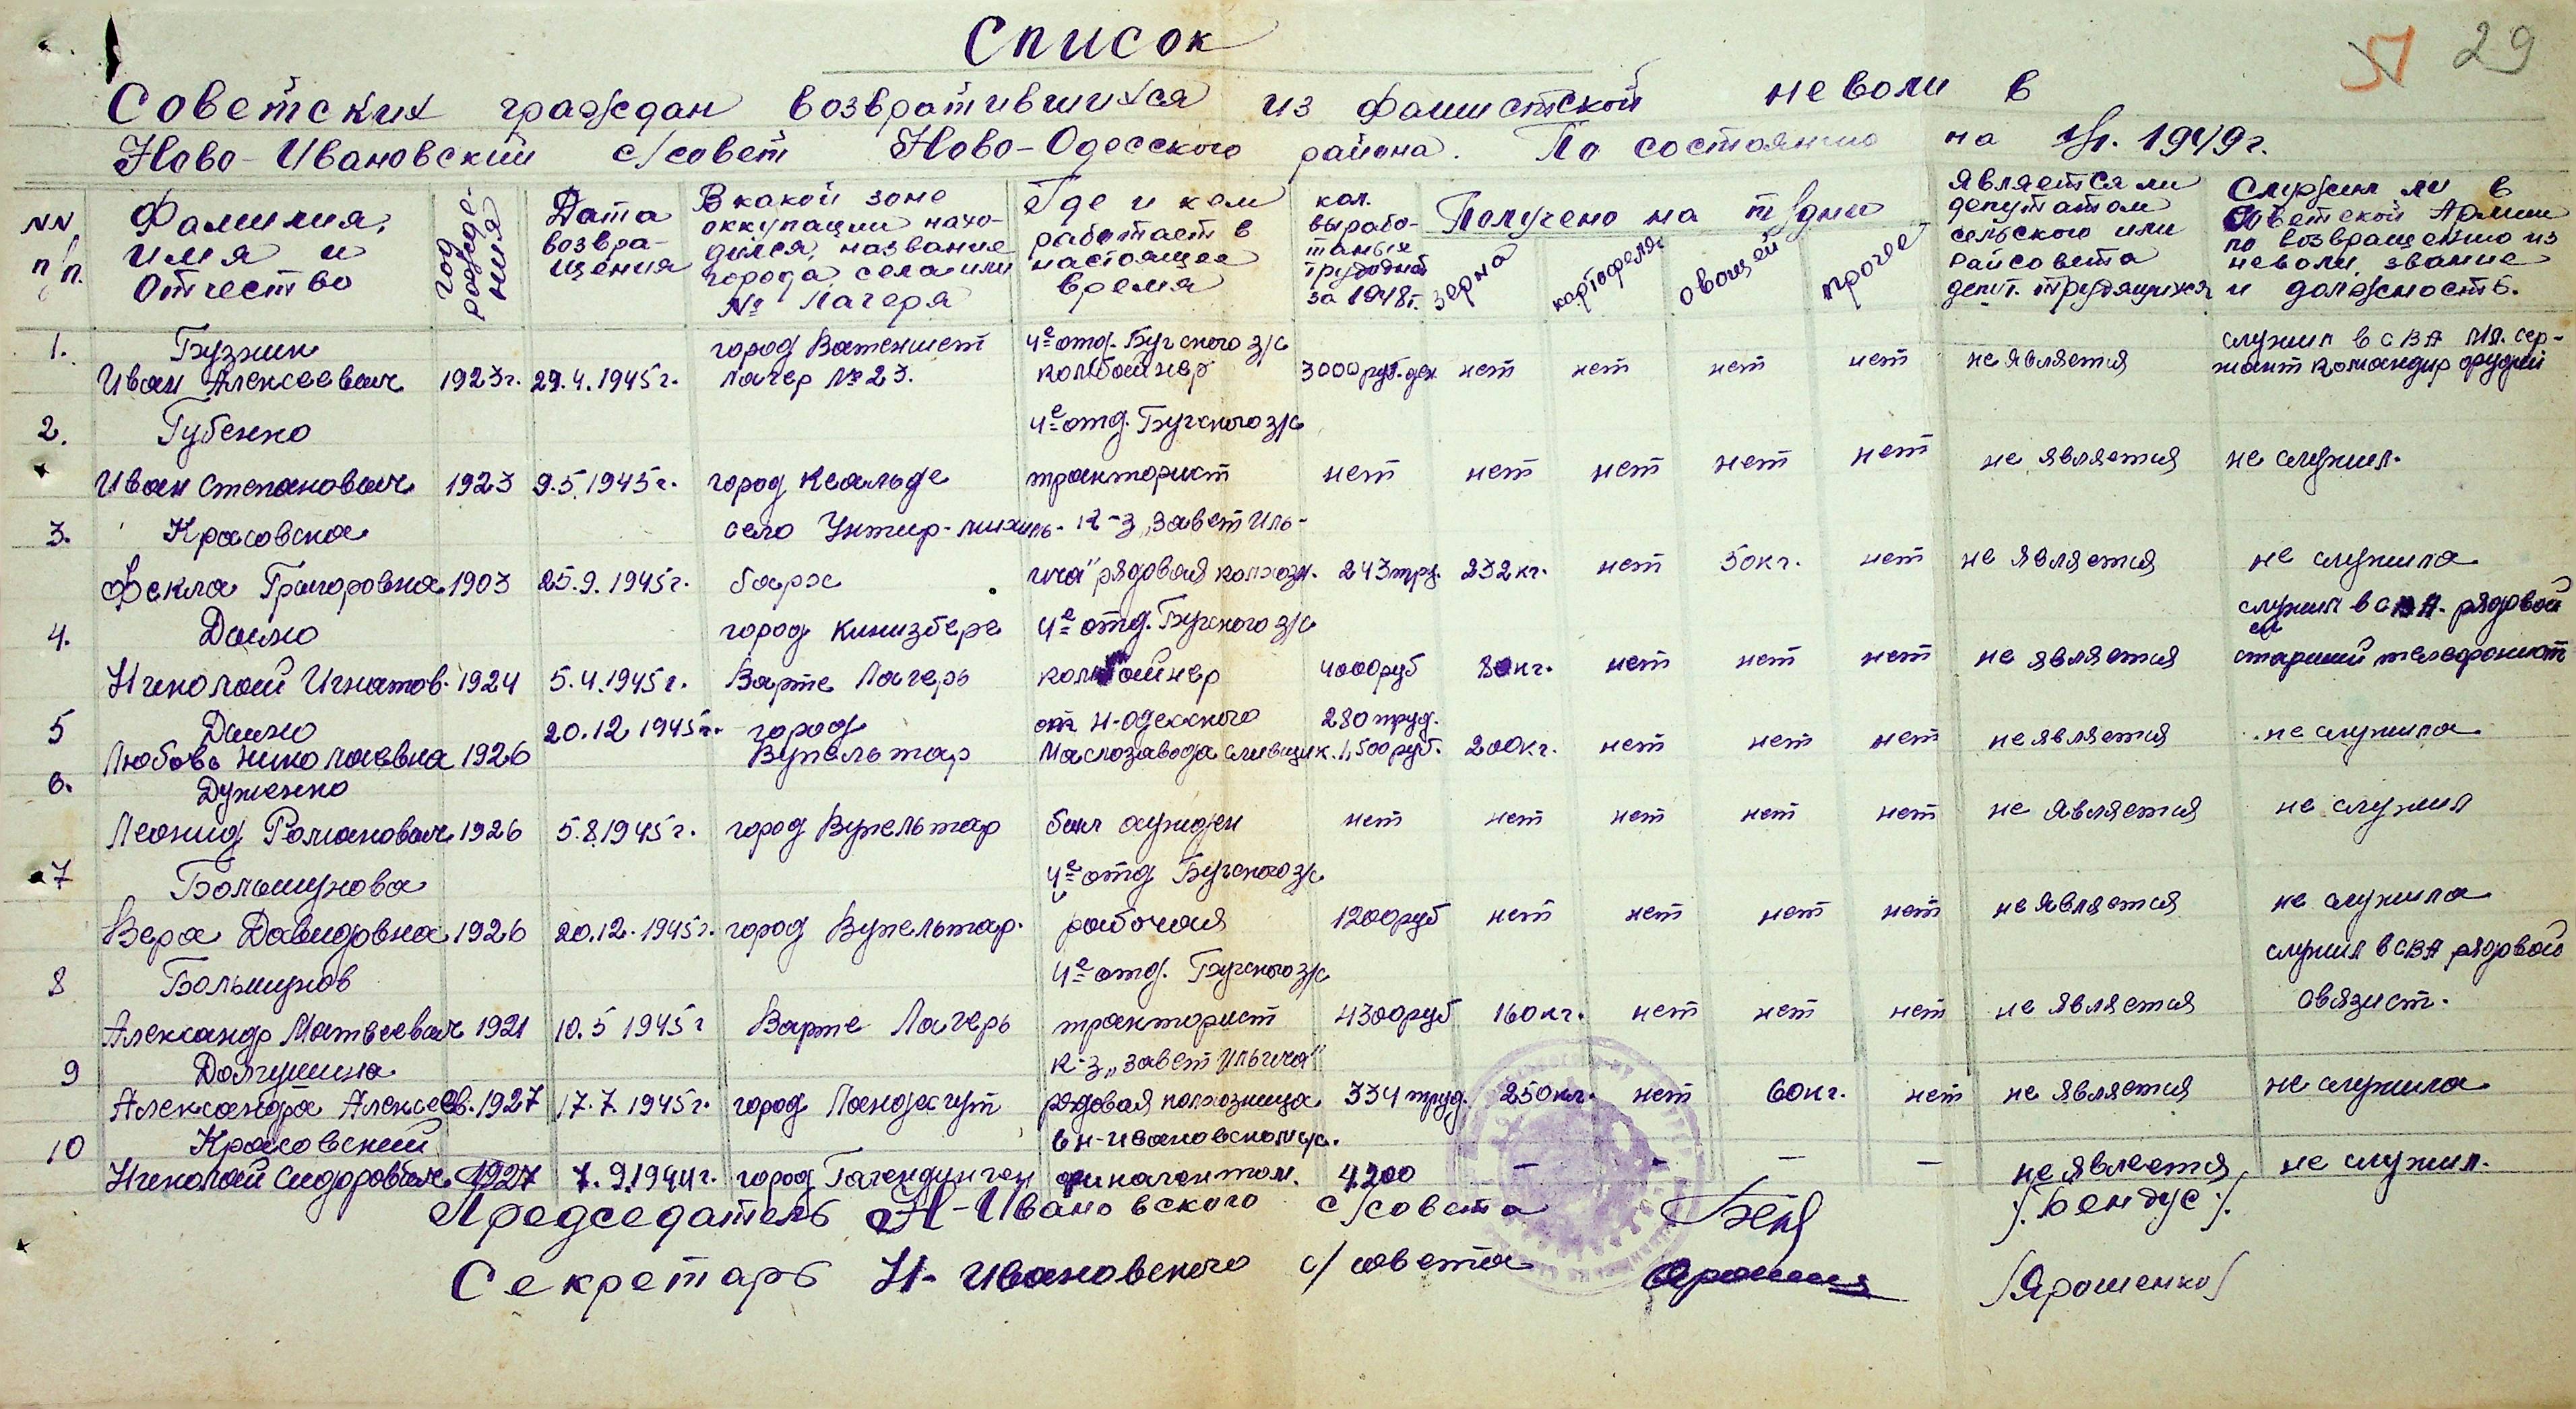 Список
51 29
Советских граждан возвратившихся из фашистской неволи в
Ново-Ивановский с/совет Ново-Одесского района. По состоянию на 1/I. 1949г.
NN п/п. Фамилия, имя и Отчество год рождения Дата возвращения В какой зоне оккупации находился, название города, села или № лагеря Где и кем работает в настоящее время кол. выработаных трудодней за 1948г. Получено на т/дни зерна картофеля овощей прочее Является ли депутатом сельского или райсовета депут. трудящихся Служил ли в Советской Армии по возвращению из неволи, звание и должность.
1. Бузник город Ватенштет 4е отд. Бугского з/с служил в СВА мл. сер-
Иван Алексеевич 1923г. 29.4.1945г. лагер № 23. комбайнер 3000 руб. ден нет нет нет нет не является жант командир орудий
2. Губенко 4е отд. Бугского з/с
Иван Степанович 1923 9.5.1945г. город Кеальде тракторист нет нет нет нет нет не является не служил.
3. Красовска село Унтир- К-з „Завет Иль-
Фекла Григоровна 1903 25.9.1945г. барх ича" рядовая колхозн. 243 труд. 232кг. нет 50кг. нет не является не служила
4. Дашко город Кинизберг 4е отд. Бугского з/с служил в СВА. рядовой
Николай Игнатов. 1924 5.4.1945г. Варте Лагерь комбайнер 4000руб 80кг. нет нет нет не является старший телефонист
5 Дашко 20.12 1945г. город от Н-Одесского 280 труд.
Любовь Николаевна 1926 Вупельтар Маслозавода сливщик. 1,500руб. 200кг. нет нет нет не является не служила
6. Дуженко
Леонид Романович 1926 5.8.1945г. город Вупельтар был осужден нет нет нет нет нет не является не служил
7 Большунова 4е отд Бугского з/с
Вера Давидовна 1926 20.12.1945г. город Вупельтар. рабочая 1200руб нет нет нет нет не является не служила
8 Большунов 4е отд. Бугского з/с служил в СВА рядовой
Александр Матвеевич 1921 10.5 1945г Варте Лагерь тракторист 4300руб 160кг. нет нет нет не является связист.
9 Долгушина к-з „Завет Ильича"
Александра Алексеев. 1927 17.7.1945г. город Ландсгут рядовая колхозница 334 труд. 250кг. нет 60кг. нет не является не служила
10 Красовский в Н-Ивановском с/с.
Николай Сидорович 1927 7.9.1944г. город Гагендинген финагентом. 4200 — — — — не является не служил.
Председатель Н-Ивановского с/совета Бенд /. Бендус /.
Секретарь Н-Ивановского с/совета /Ярошенко/